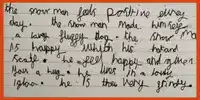 the snow man feels positive every
day. the snow man made himself
a large fluggy Dog. the snow man
is happy which his hotand
scafe. he feel happy and when
your a hug. he lives in a lovely
igloo. he is the very frindy.